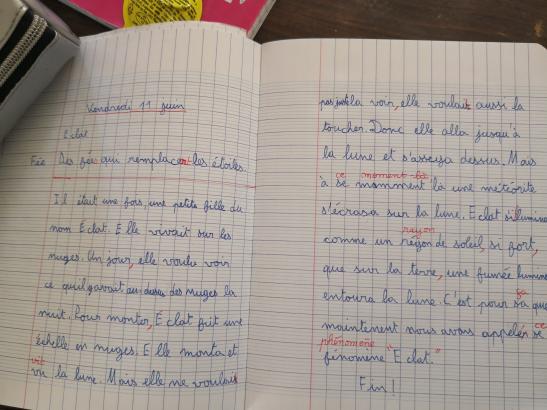 Vendredi 11 juin
Eclat
Fée Des fée qui remplacent les étoiles.
Il était une fois, une petite fille du
nom Éclat. Elle vivait sur les
nuges. Un jour, elle voulu voir
ce qu'il y avait au dessu des nuages la
nuit. Pour monter, Éclat fit une
échelle en nuages. Elle monta et
vit
vu la lune. Mais elle ne voulais
pas juste la voir, elle voulait aussi la
toucher. Donc elle alla jusqu'à
la lune et s'asseya dessus. Mais
ce moment-là
à se momment là une météorite
s'écrasa sur la lune. Eclat s'illumine
rayon
comme un réyon de soleil, si fort,
que sur la terre, une fumée lumine
entoura la lune. C'est pour sa que
ça
maintenent nous avons appelér se
ce
phénomène
fénomène "Eclat."
Fin!